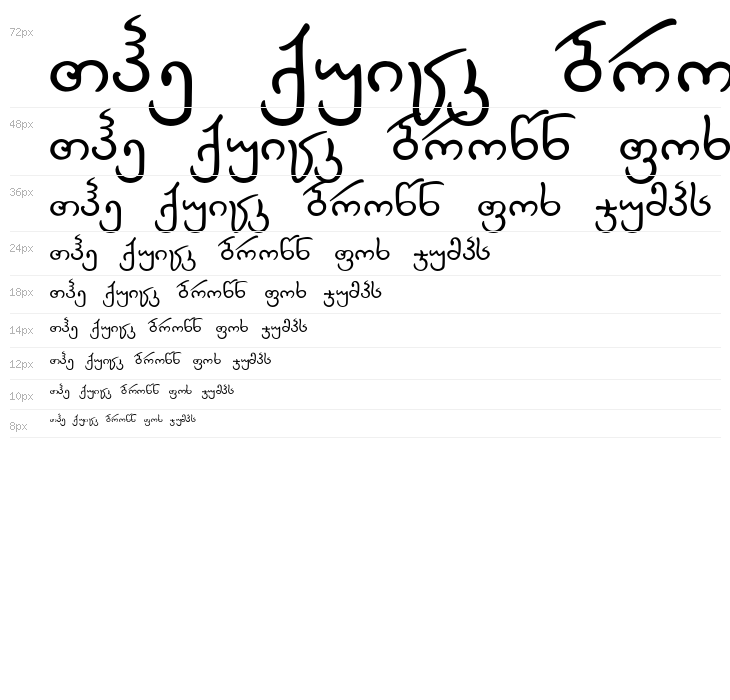 72px თჰე ქუიცკ ბრო
48px თჰე ქუიცკ ბროწნ ფოხ
36px თჰე ქუიცკ ბროწნ ფოხ ჯუმპს
24px თჰე ქუიცკ ბროწნ ფოხ ჯუმპს
18px თჰე ქუიცკ ბროწნ ფოხ ჯუმპს
14px თჰე ქუიცკ ბროწნ ფოხ ჯუმპს
12px თჰე ქუიცკ ბროწნ ფოხ ჯუმპს
10px თჰე ქუიცკ ბროწნ ფოხ ჯუმპს
8px თჰე ქუიცკ ბროწნ ფოხ ჯუმპს